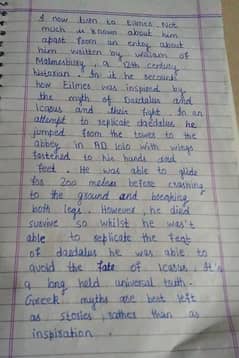 I now turn to Eilmer. Not
much is known about him
apart from an entry about
him written by William of
Malmesbury, a 12th century
historian. In it he recounts
how Eilmer was inspired by
the myth of Daedalus and
Icarus and their flight. In an
attempt to replicate daedalus he
jumped from the tower to the
abbey in AD 1010 with wings
fastened to his hands and
feet. He was able to glide
for 200 metres before crashing
to the ground and breaking
both legs. However, he did
survive so whilst he wasn't
able to replicate the feat
of daedalus he was able to
avoid the fate of Icarus. It's
a long held universal truth.
Greek myths are best left
as stories, rather than as
inspiration.